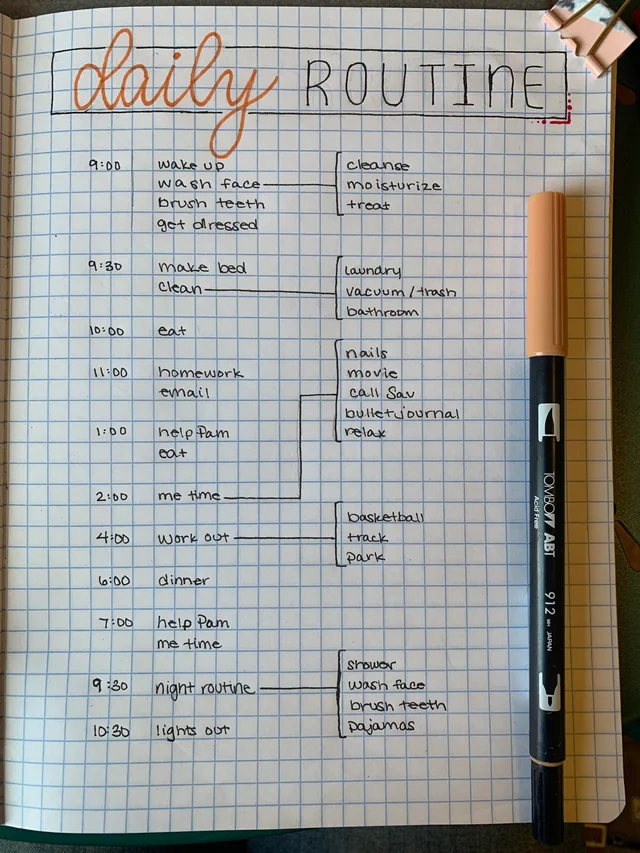 daily ROUTINE
9:00 wake up
wash face
brush teeth
get dressed
cleanse
moisturize
treat
9:30 make bed
clean
laundry
vacuum/trash
bathroom
10:00 eat
11:00 homework
email
nails
movie
call Sav
bullet journal
relax
1:00 help Pam
eat
2:00 me time
4:00 work out
basketball
track
park
6:00 dinner
7:00 help Pam
me time
9:30 night routine
shower
wash face
brush teeth
pajamas
10:30 lights out
TOMBOW ABT
Acid Free
912
JAPAN